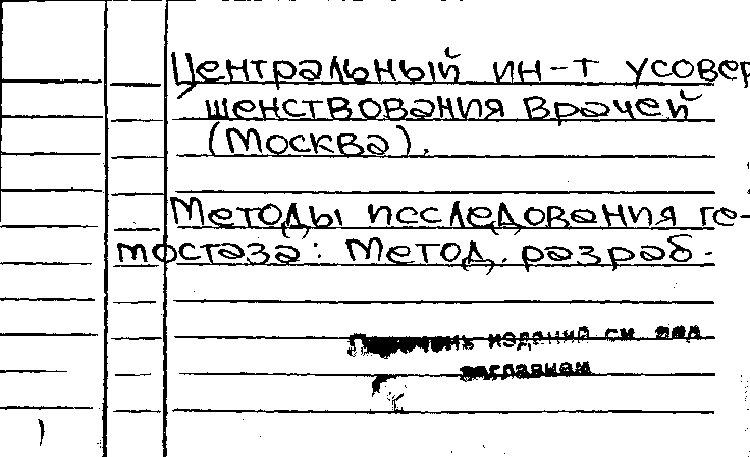 Центральный ин-т усовер
шенствования врачей
(Москва).
Методы исследования ге-
мостаза: Метод. разраб.
Перечень изданий см. под
заглавием
)